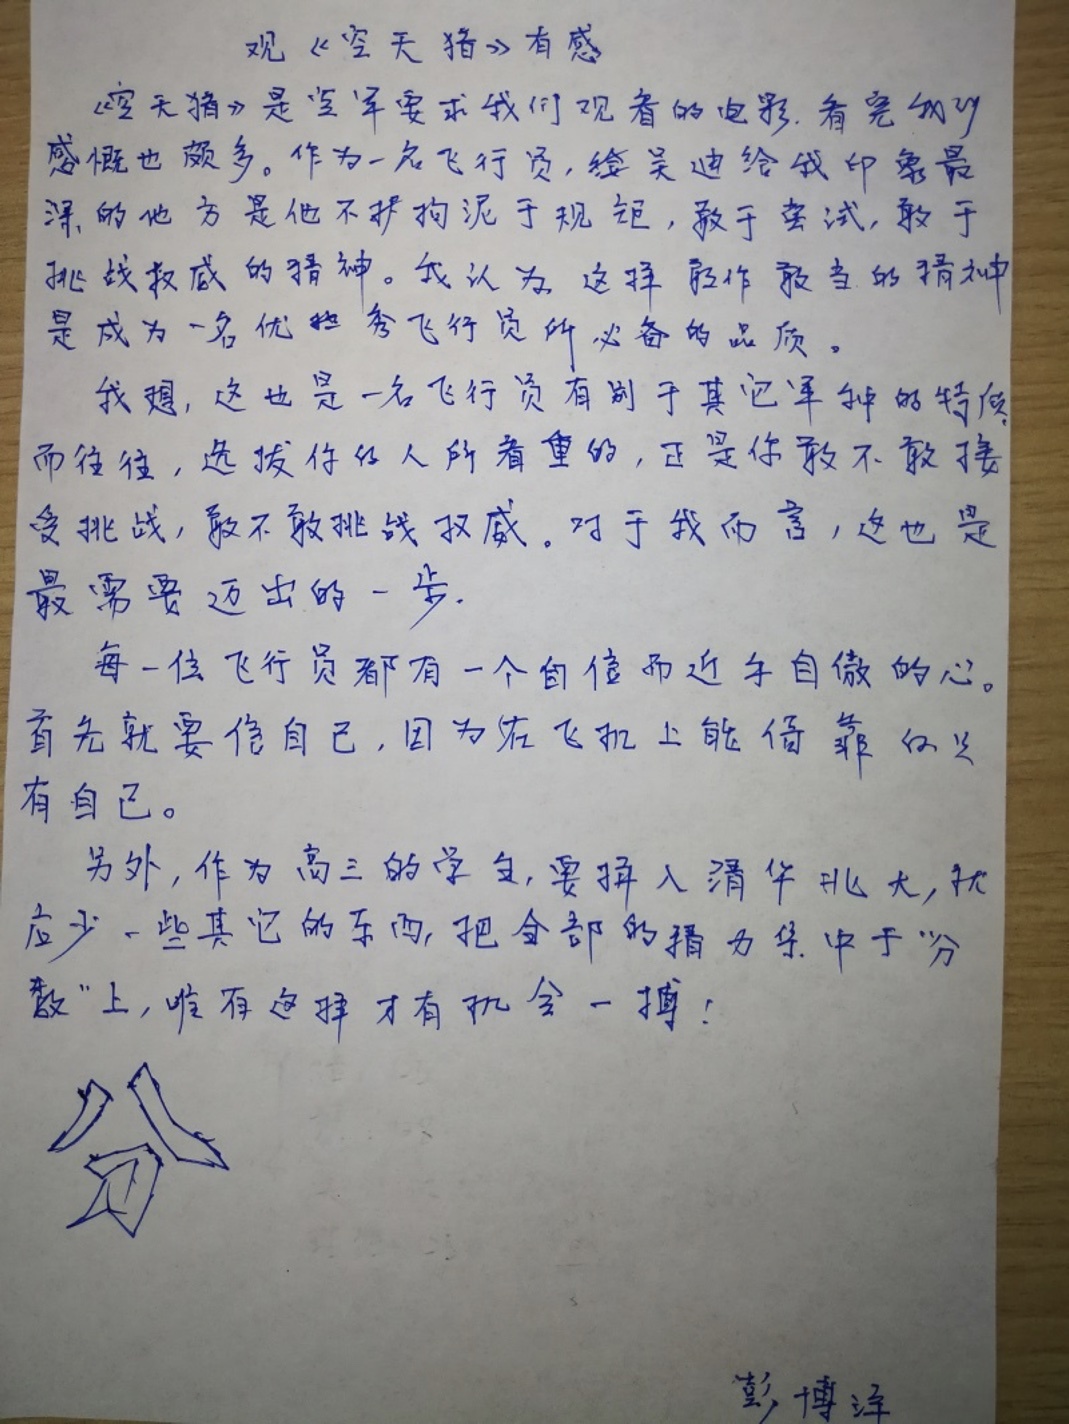 观《空天猎》有感
《空天猎》是空军要求我们观看的电影.看完
感慨也颇多。作为一名飞行员,吴迪给我印象最
深的地方是他不拘泥于规矩,敢于尝试,敢于
挑战权威的精神。我认为这样敢作敢当的精神
是成为一名优秀飞行员所必备的品质。
我想,这也是一名飞行员有别于其它军种的特质,
而往往,选拔你的人所看重的,正是你敢不敢接
受挑战,敢不敢挑战权威。对于我而言,这也是
最需要迈出的一步.
每一位飞行员都有一个自信而近乎自傲的心。
首先就要信自己,因为在飞机上能倚靠的只
有自己。
另外,作为高三的学生,要拼入清华北大,就
应少一些其它的东西,把全部的精力集中于“分
数”上,唯有这样才有机会一搏!
分
彭博泽